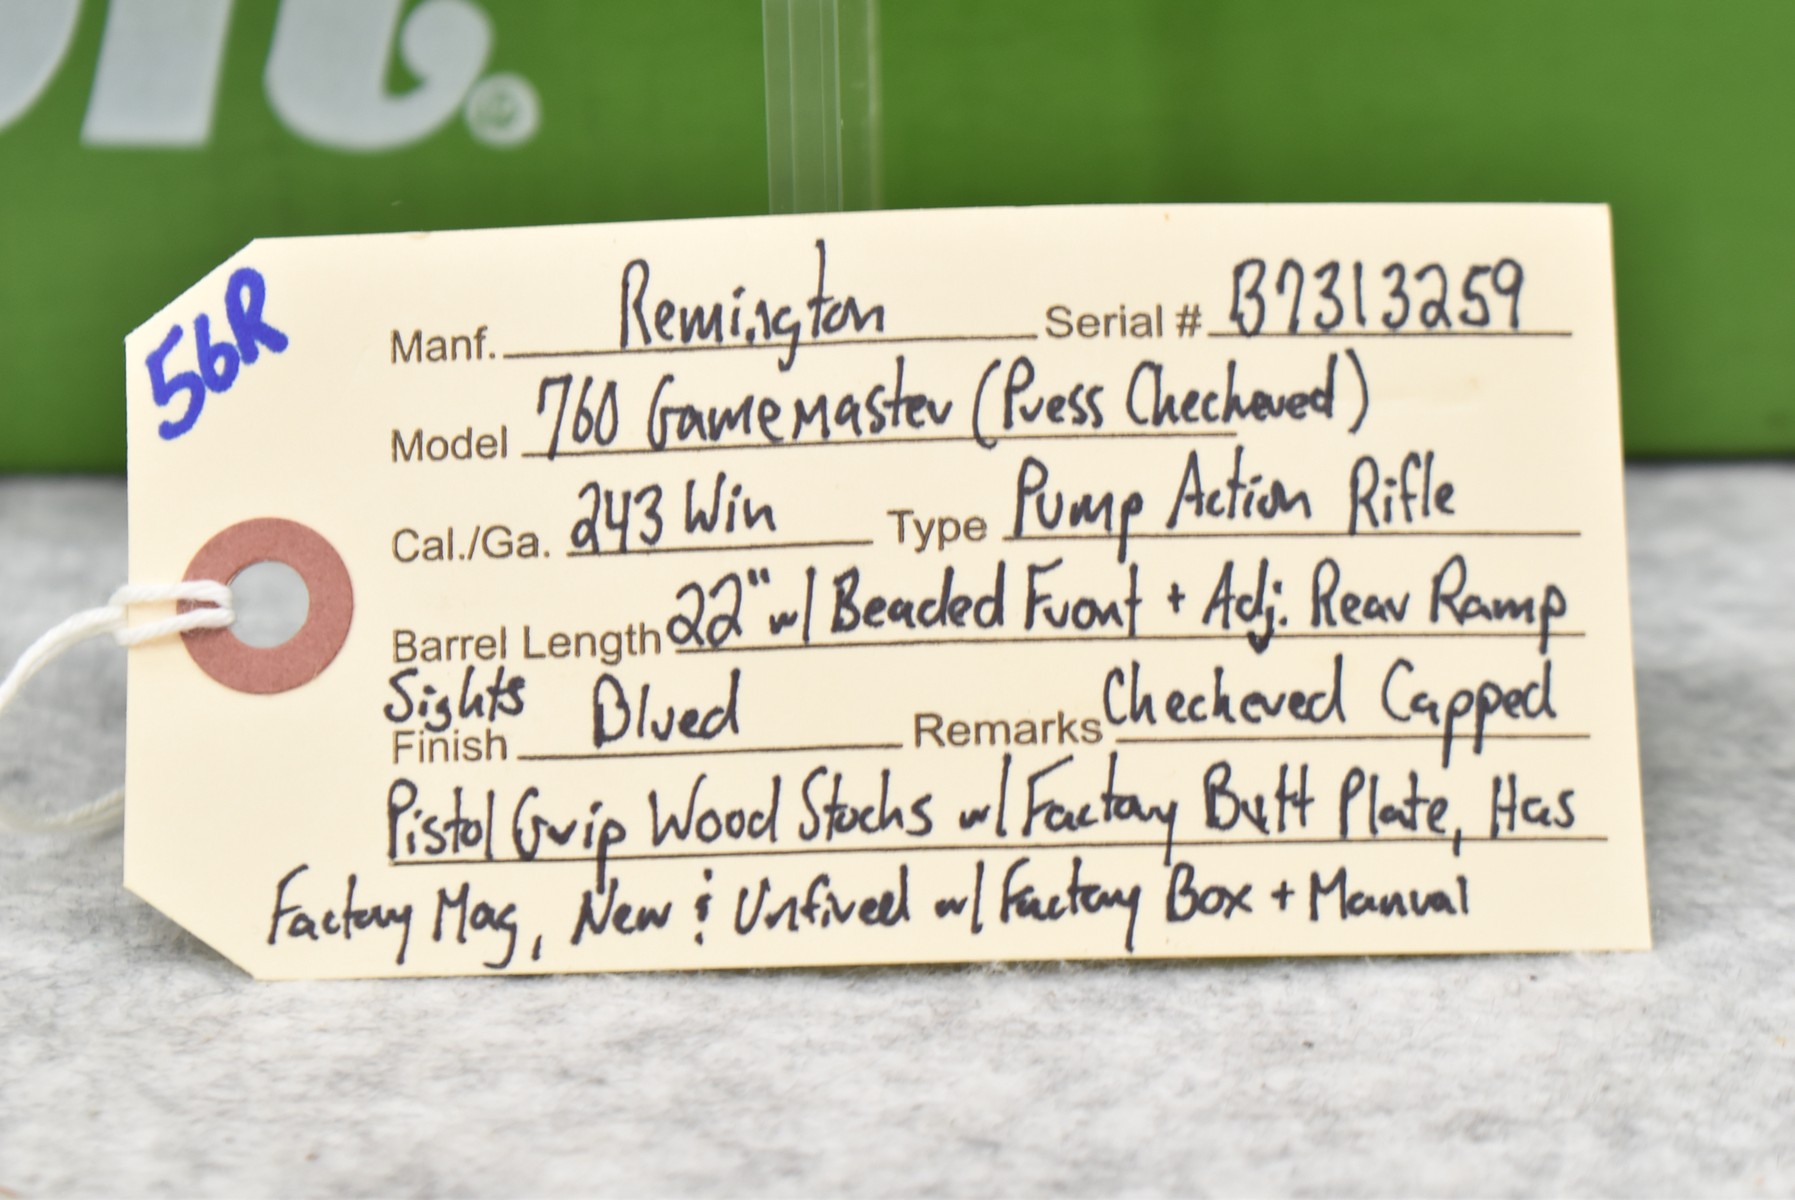 ®
56R
Manf. Remington Serial # B7313259
Model 760 Gamemaster (Press Checkered)
Cal./Ga. 243 Win Type Pump Action Rifle
Barrel Length 22" w/ Beaded Front + Adj. Rear Ramp
Sights
Finish Blued Remarks Checkered Capped
Pistol Grip Wood Stocks w/ Factory Butt Plate, Has
Factory Mag, New & Unfired w/ Factory Box + Manual